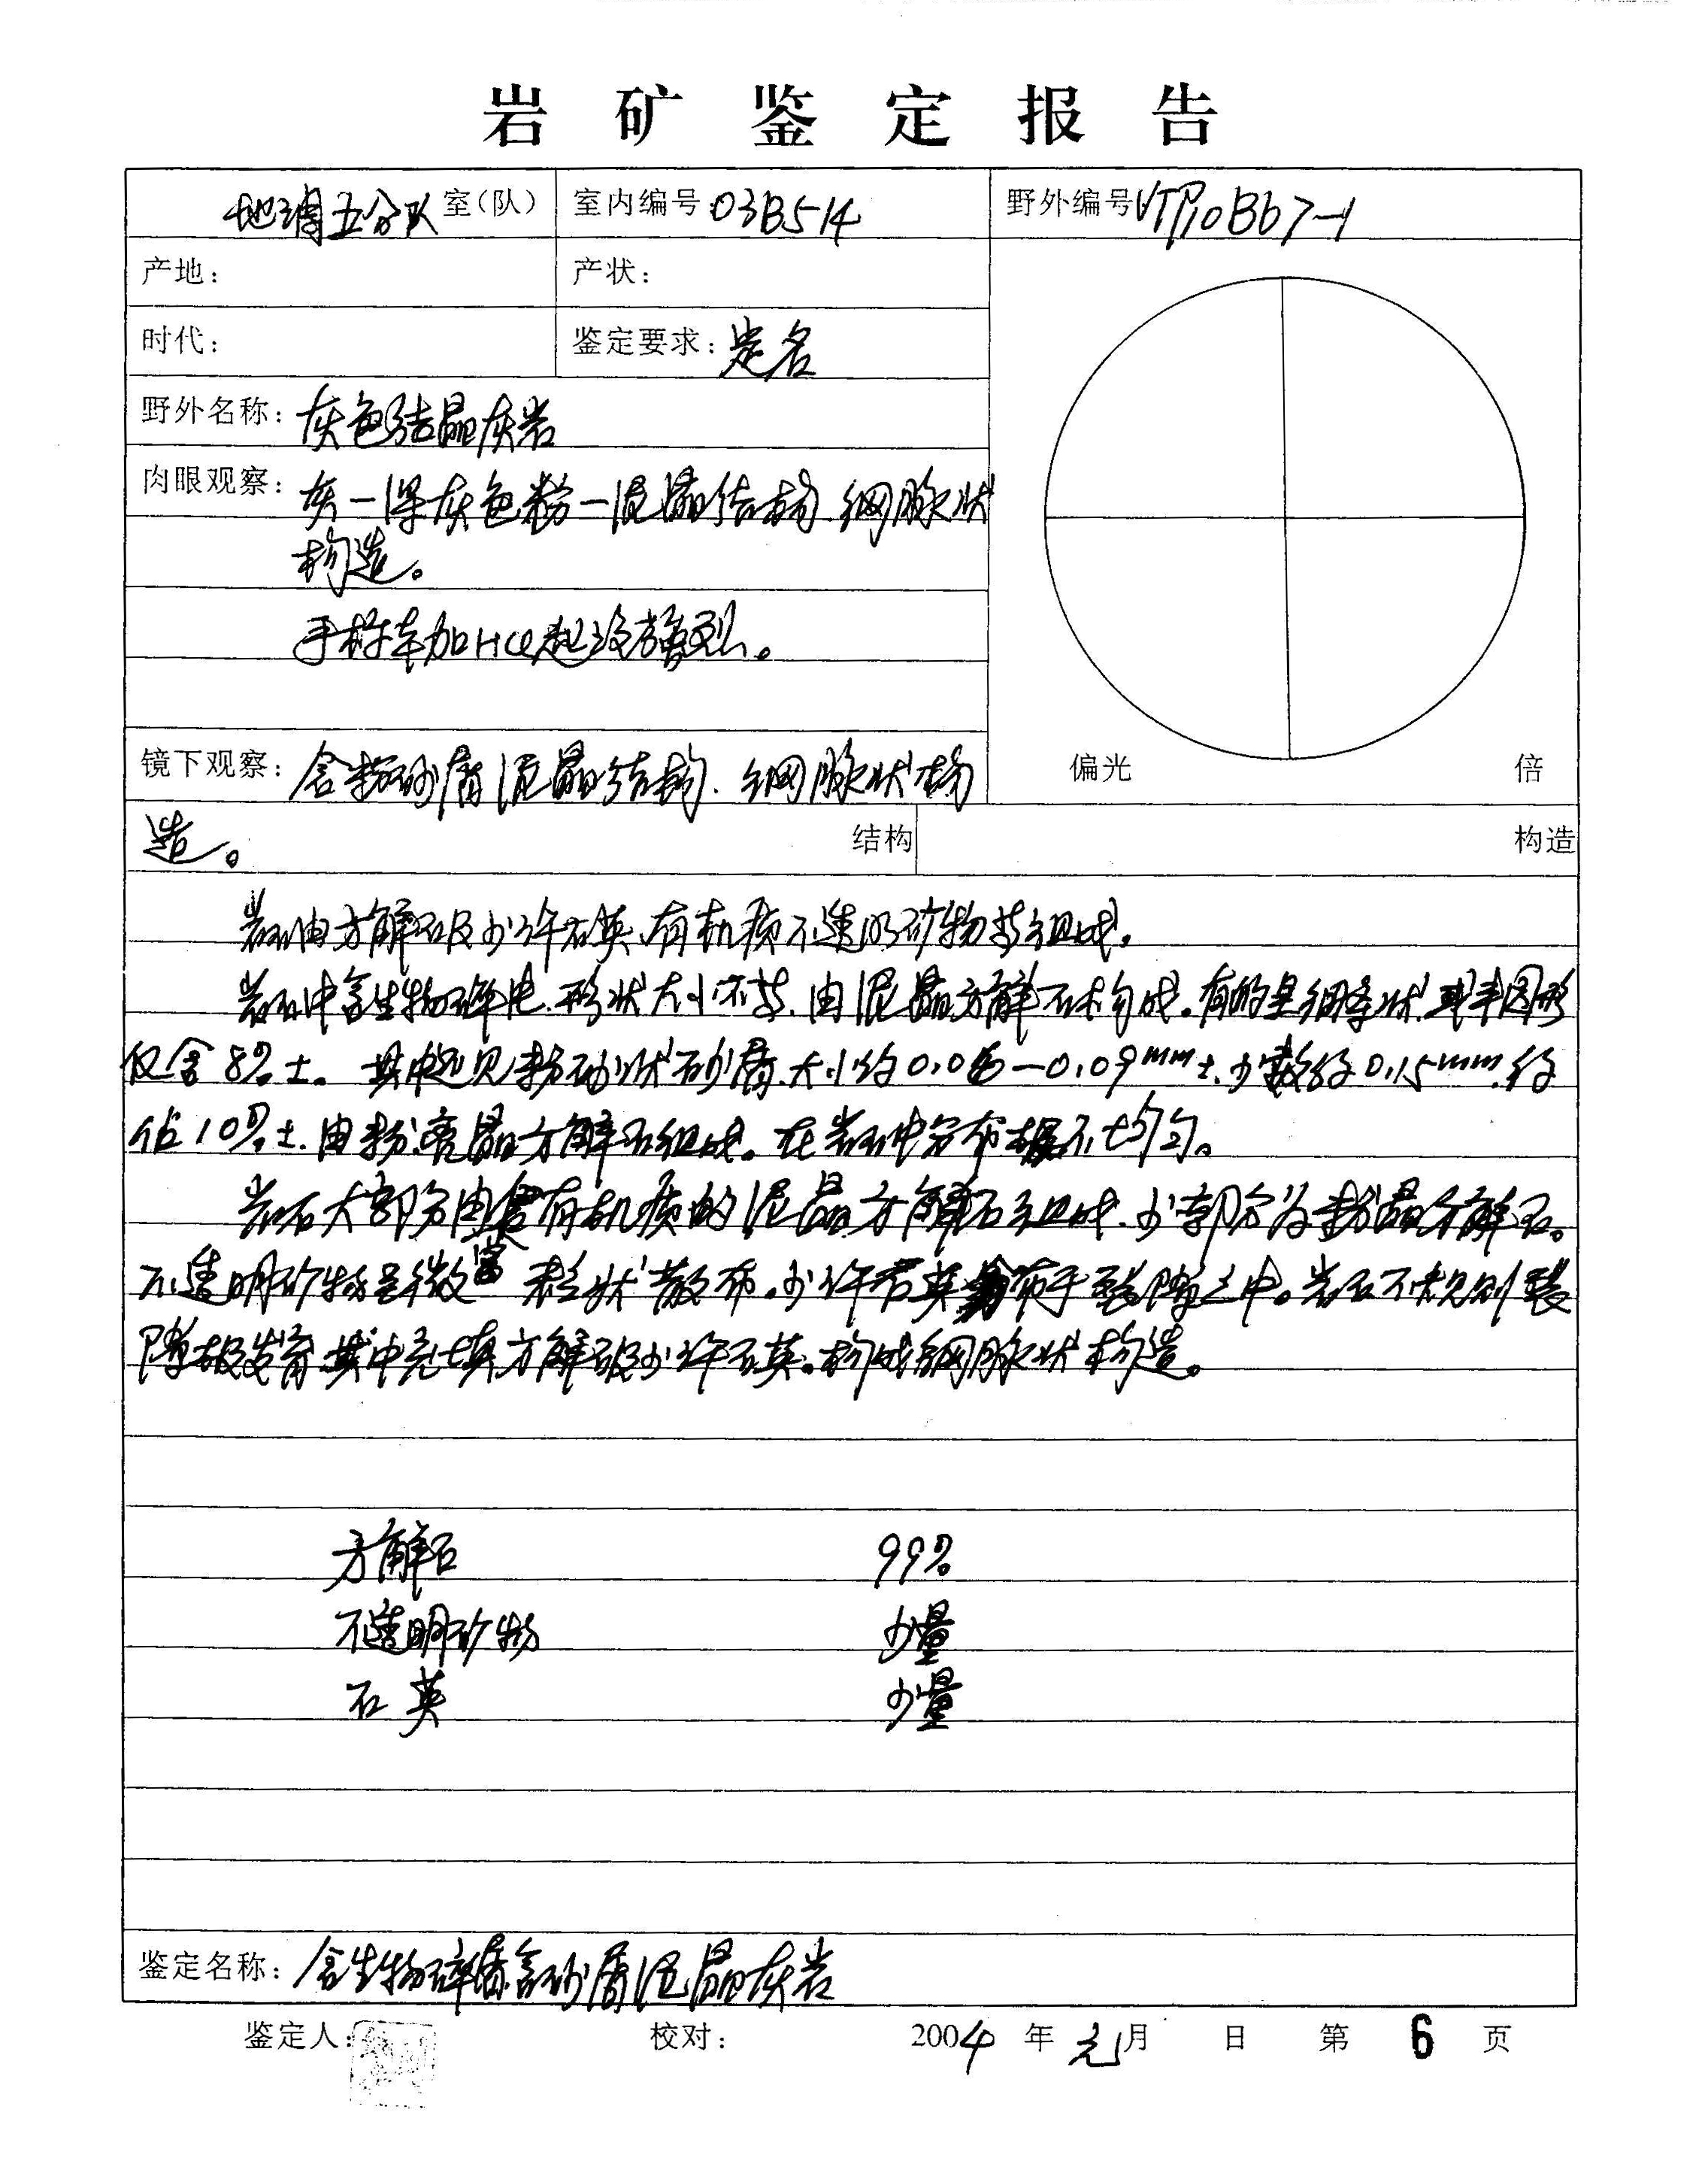 岩矿鉴定报告
地调五分队 室(队) 室内编号:03B514 野外编号VTP10Bb7-1
产地: 产状:
时代: 鉴定要求:定名
野外名称:灰色结晶灰岩
肉眼观察:灰一深灰色粉一泥晶结构.细网脉状
构造。
手标本加HCl起泡강烈。
镜下观察:含粉砂屑泥晶结构.细网脉状构
偏光 倍
造。 结构 构造
岩石由方解石及少许石英、有机质不透明矿物等组成。
岩石中含生物碎片.形状大小不等.由泥晶方解石构成。有的呈细条状或半圆形
仅含8%±。其中还见粉砂状砂屑.大小约0.05-0.09mm±.少数约0.15mm.约
佔10%±.由粉亮晶方解石组成。在岩石中分布极不均匀。
岩石大部分由含有机质的泥晶方解石组成.少部分为粉晶方解石。
不透明矿物呈微 粒状散布。少许石英 布于裂隙之中。岩石不规则裂
隙极发育.其中充填方解石及少许石英。构成细网脉状构造。
方解石 99%
不透明矿物 少量
石英 少量
鉴定名称:含生物碎屑含砂屑泥晶灰岩
鉴定人: 校对: 2004年元月 日 第6页